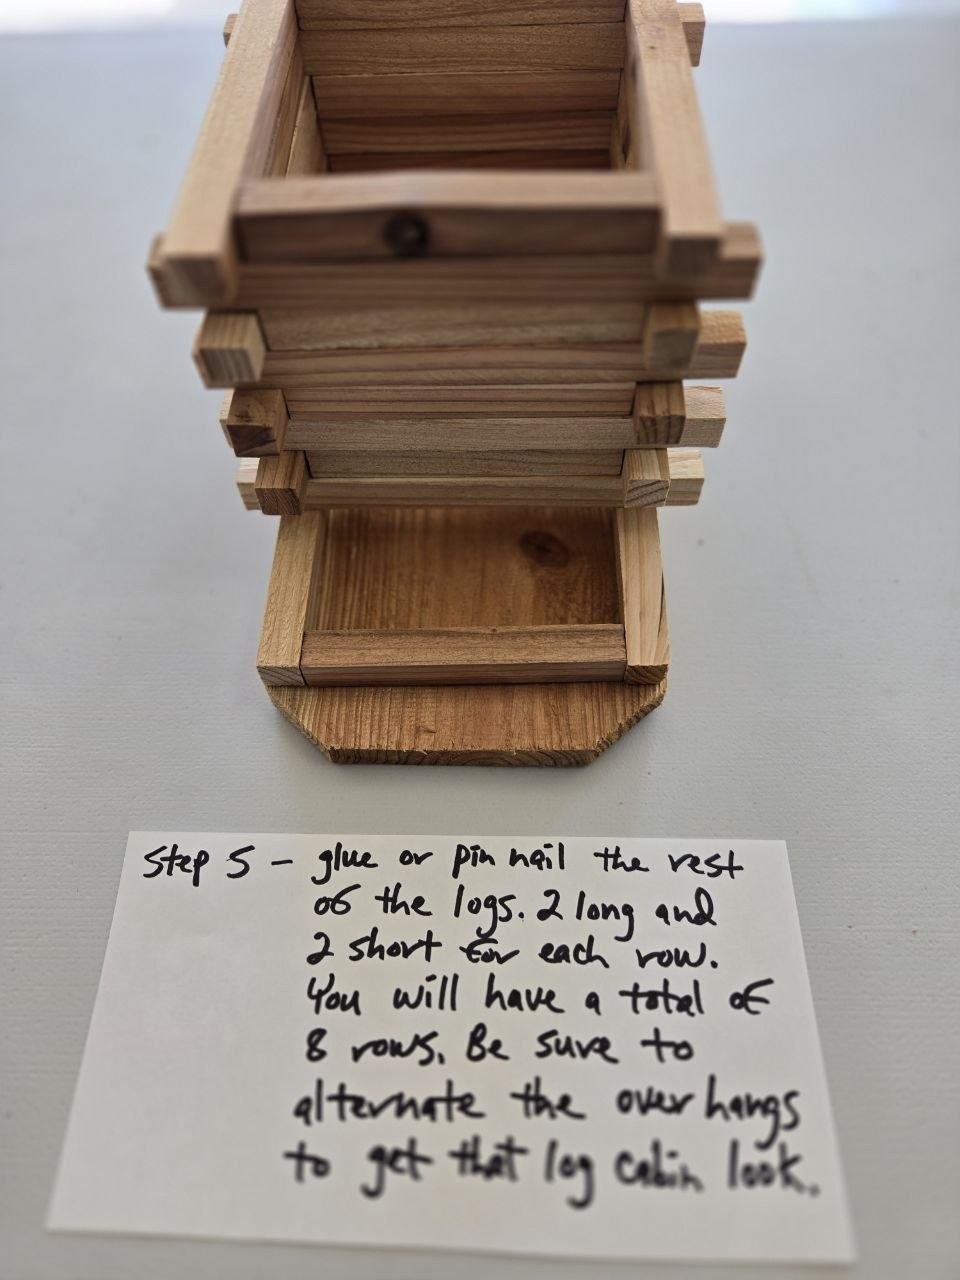 Step 5 - glue or pin nail the rest
of the logs. 2 long and
2 short for each row.
You will have a total of
8 rows. Be sure to
alternate the over hangs
to get that log cabin look.